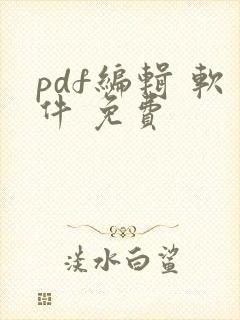 pdf編輯 軟
件 免費
淡水白鯊